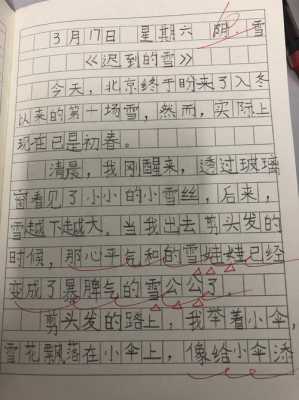 3月17日 星期六 阴.雪
《迟到的雪》
今天，北京终于盼来了入冬
以来的第一场雪，然而，实际上
现在已是初春。
清晨，我刚醒来，透过玻璃
窗看见了小小的小雪丝，后来，
雪越下越大。当我出去剪头发的
时候，那心平气和的雪娃娃已经
变成了暴脾气的雪公公了。
剪头发的路上，我举着小伞，
雪花飘落在小伞上，像给小伞添